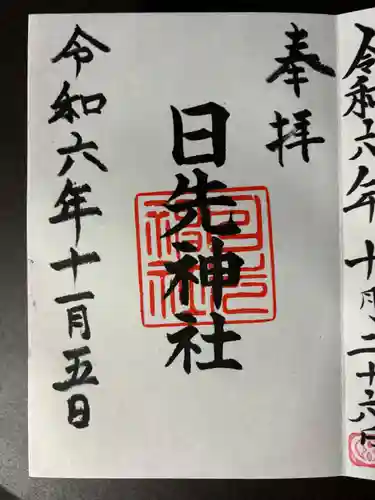 令和六年十一月二十六日
奉拝
日先神社
令和六年十一月五日